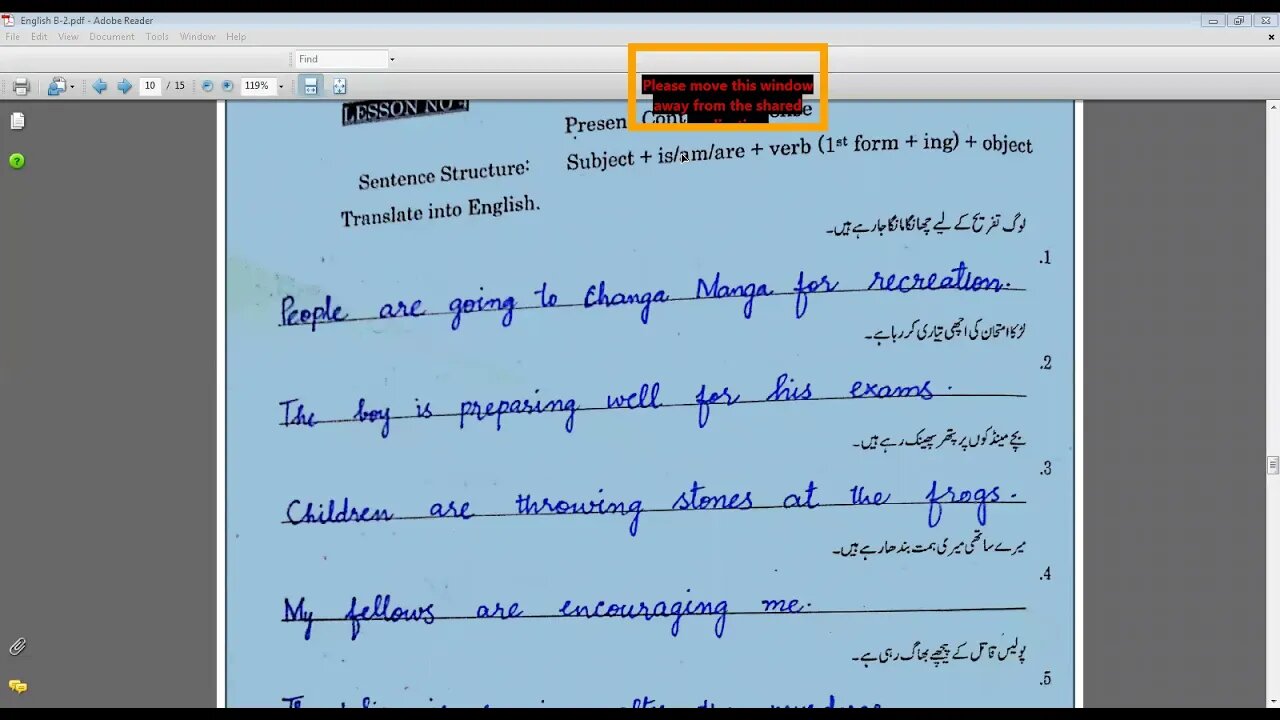 English B-2.pdf - Adobe Reader
File Edit View Document Tools Window Help
Find
10 / 15 119%
Please move this window
away from the shared
LESSON NO
Sentence Structure: Subject + is/am/are + verb (1st form + ing) + object
Translate into English.
لوگ تفریح کے لیے چھانگا مانگا جارہے ہیں۔
1.
People are going to Changa Manga for recreation.
لڑکا امتحان کی اچھی تیاری کر رہا ہے۔
2.
The boy is preparing well for his exams.
بچے مینڈکوں پر پتھر پھینک رہے ہیں۔
3.
Children are throwing stones at the frogs.
میرے ساتھی میری ہمت بندھا رہے ہیں۔
4.
My fellows are encouraging me.
پولیس قاتل کے پیچھے بھاگ رہی ہے۔
5.